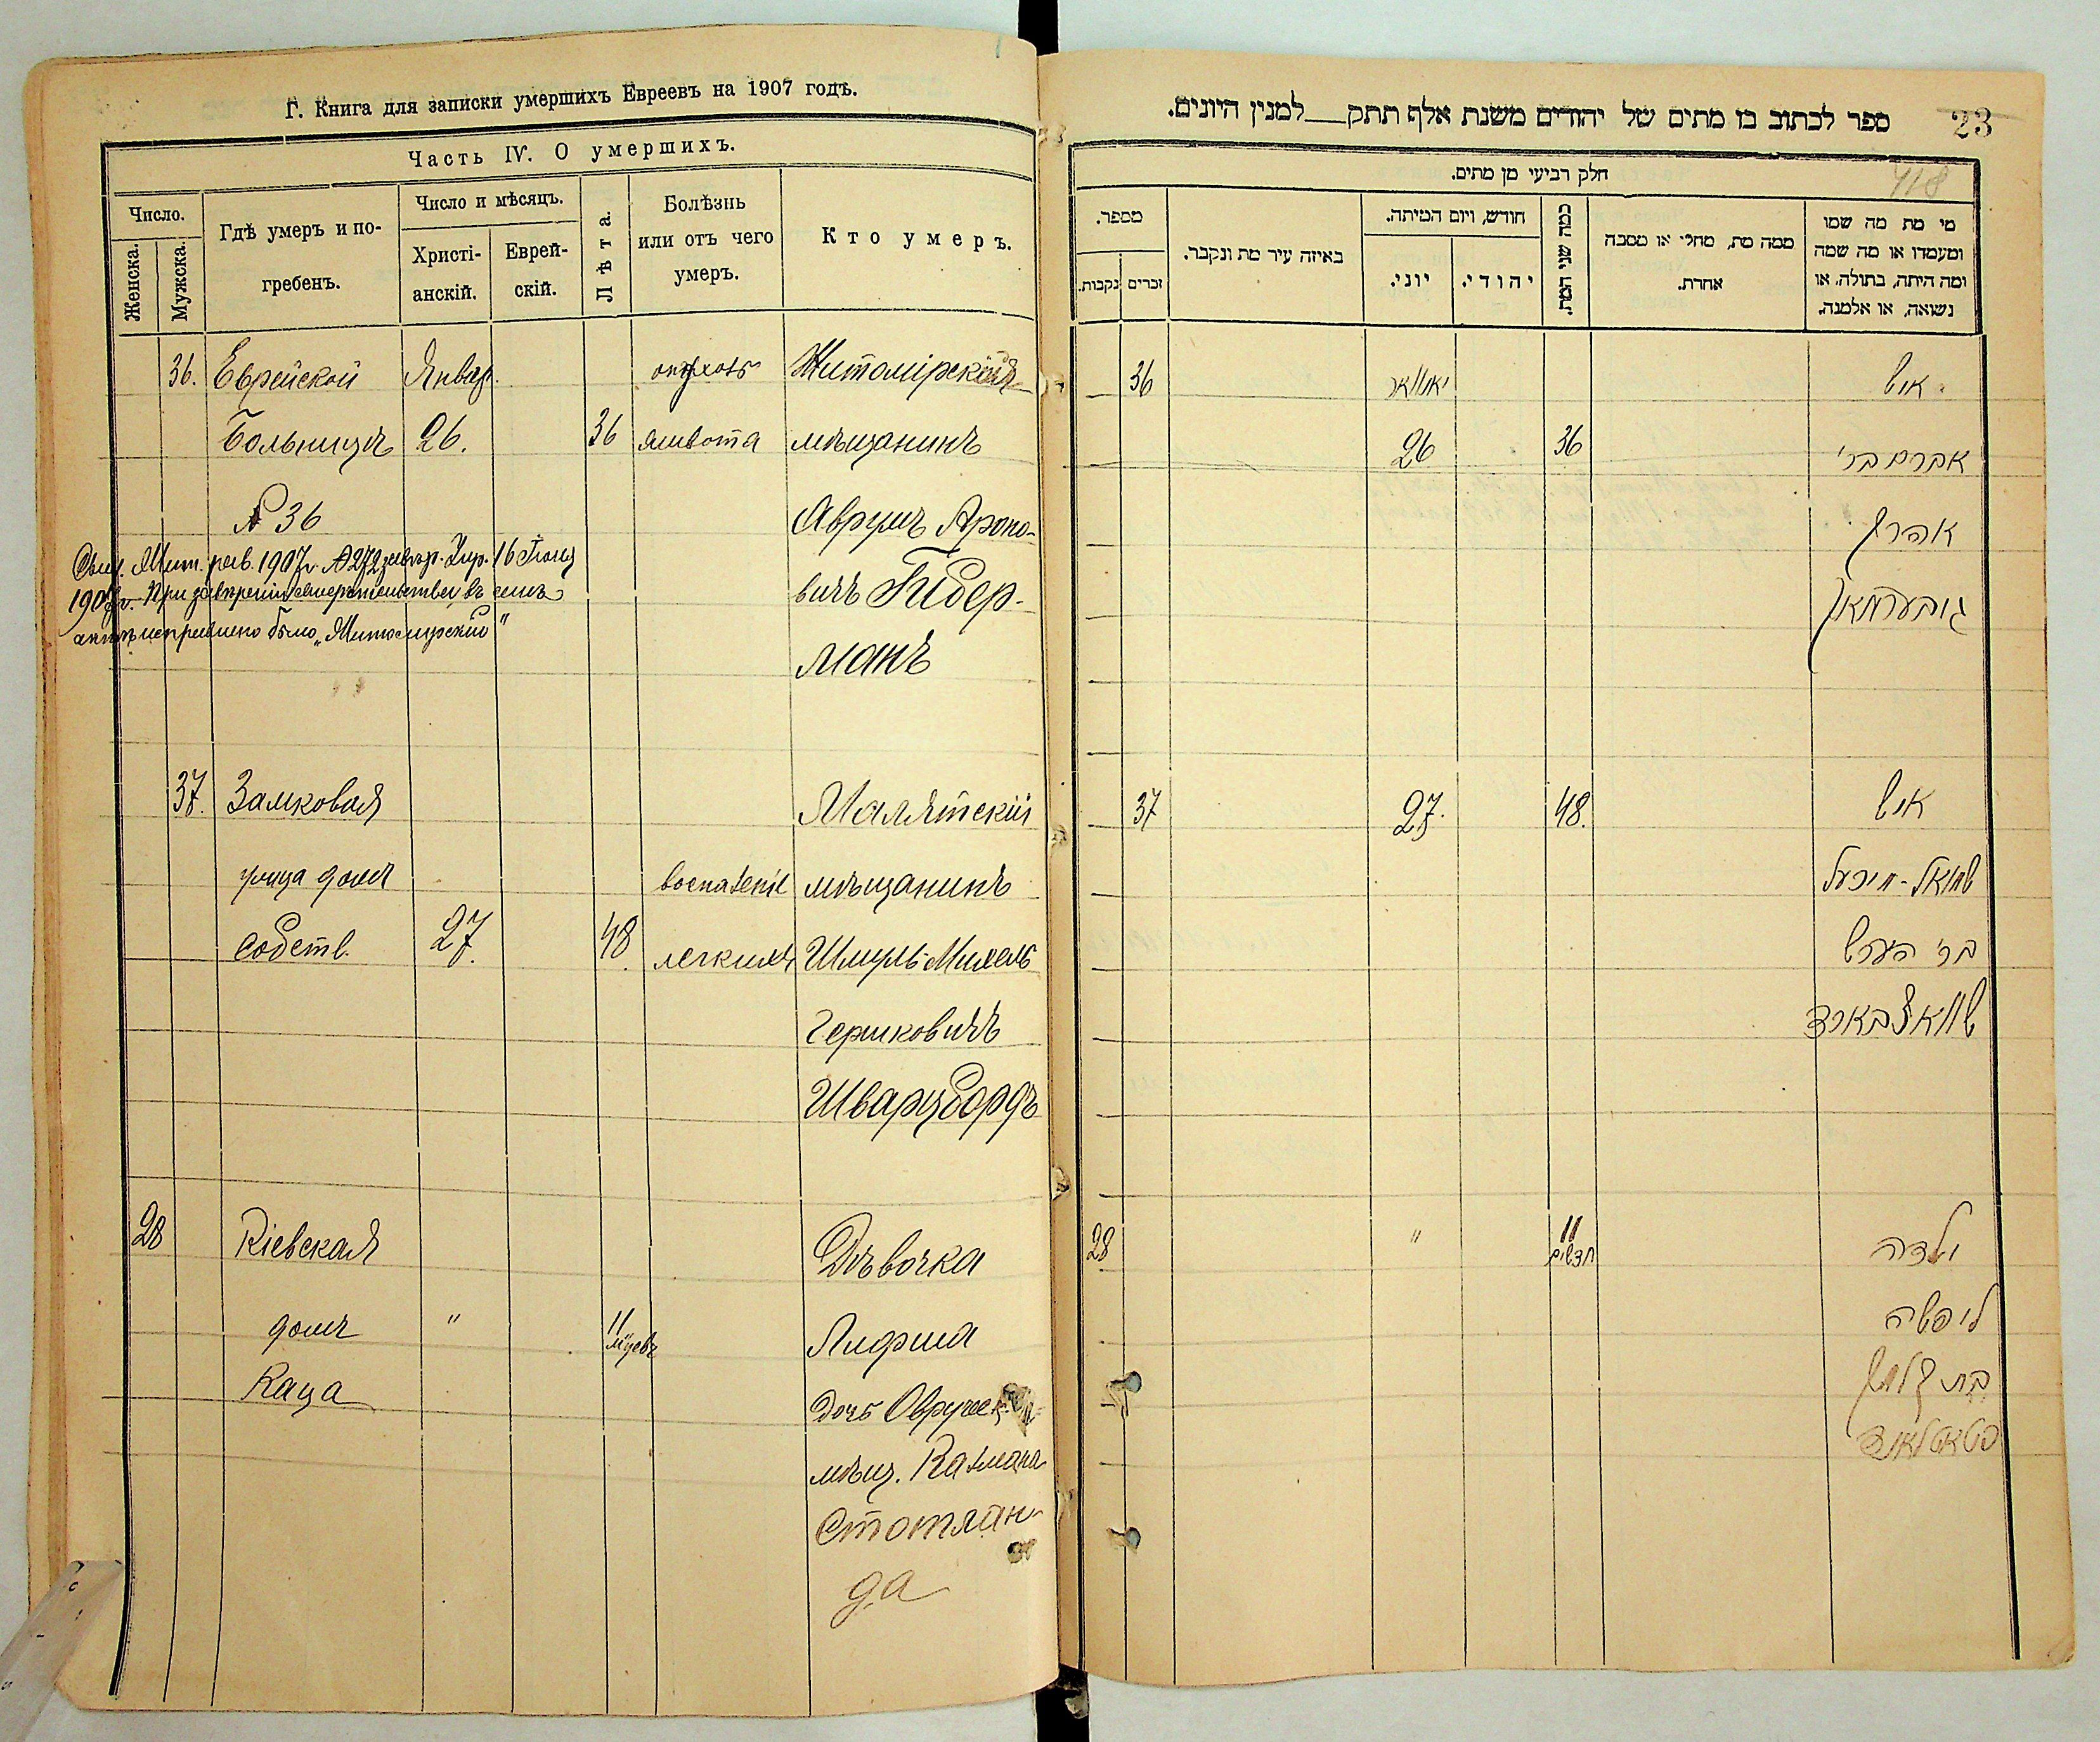 Г. Книга для записки умершихъ Евреевъ на 1907 годъ.
Часть IV. О умершихъ.
Число.
Женска.
Мужска.
Гдѣ умеръ и по-
гребенъ.
Число и мѣсяцъ.
Христі-
анскій.
Еврей-
скій.
Лѣта.
Болѣзнь
или отъ чего
умеръ.
Кто умеръ.
36. Еврейской Январ. Житомірскій
Больницѣ 26. 36 живота мѣщанинъ
№ 36 Аврумъ Ароно-
вичъ Гибер-
манъ
1907 г. № 272 16 Іюля
исправлено было „Житомирскій"
37. Замковая Малятскій
улица домъ воспаленіе мѣщанинъ
собств. 27. 48. легкихъ Шмуль-Михель
Гершковичъ
Шварцбордъ
28 Кіевская Дѣвочка
домъ " 11 м-цевъ Лифша
Каца дочь Овручск
мѣщ. Калмана
Стотлан-
да
ספר לכתוב בו מתים של יהודים משנת אלף תתק__למנין היונים.
23
418
חלק רביעי מן מתים.
מספר.
זכרים
נקבות.
באיזה עיר מת ונקבר.
חודש, ויום המיתה.
יוני.
יהודי.
כמה שני המת.
ממה מת, מחלי או מסבה
אחרת.
מי מת מה שמו
ומעמדו או מה שמה
ומה היתה, בתולה, או
נשואה, או אלמנה.
36 יאנואר איש
26 36 אברם בר'
אהרן
גיבערמאן
37 27. 48. איש
שמואל-מיכעל
בר' הערש
שווארצבארד
28 " 11 חדשים ילדה
ליפשה
בת קלמן
סטאטלאנד